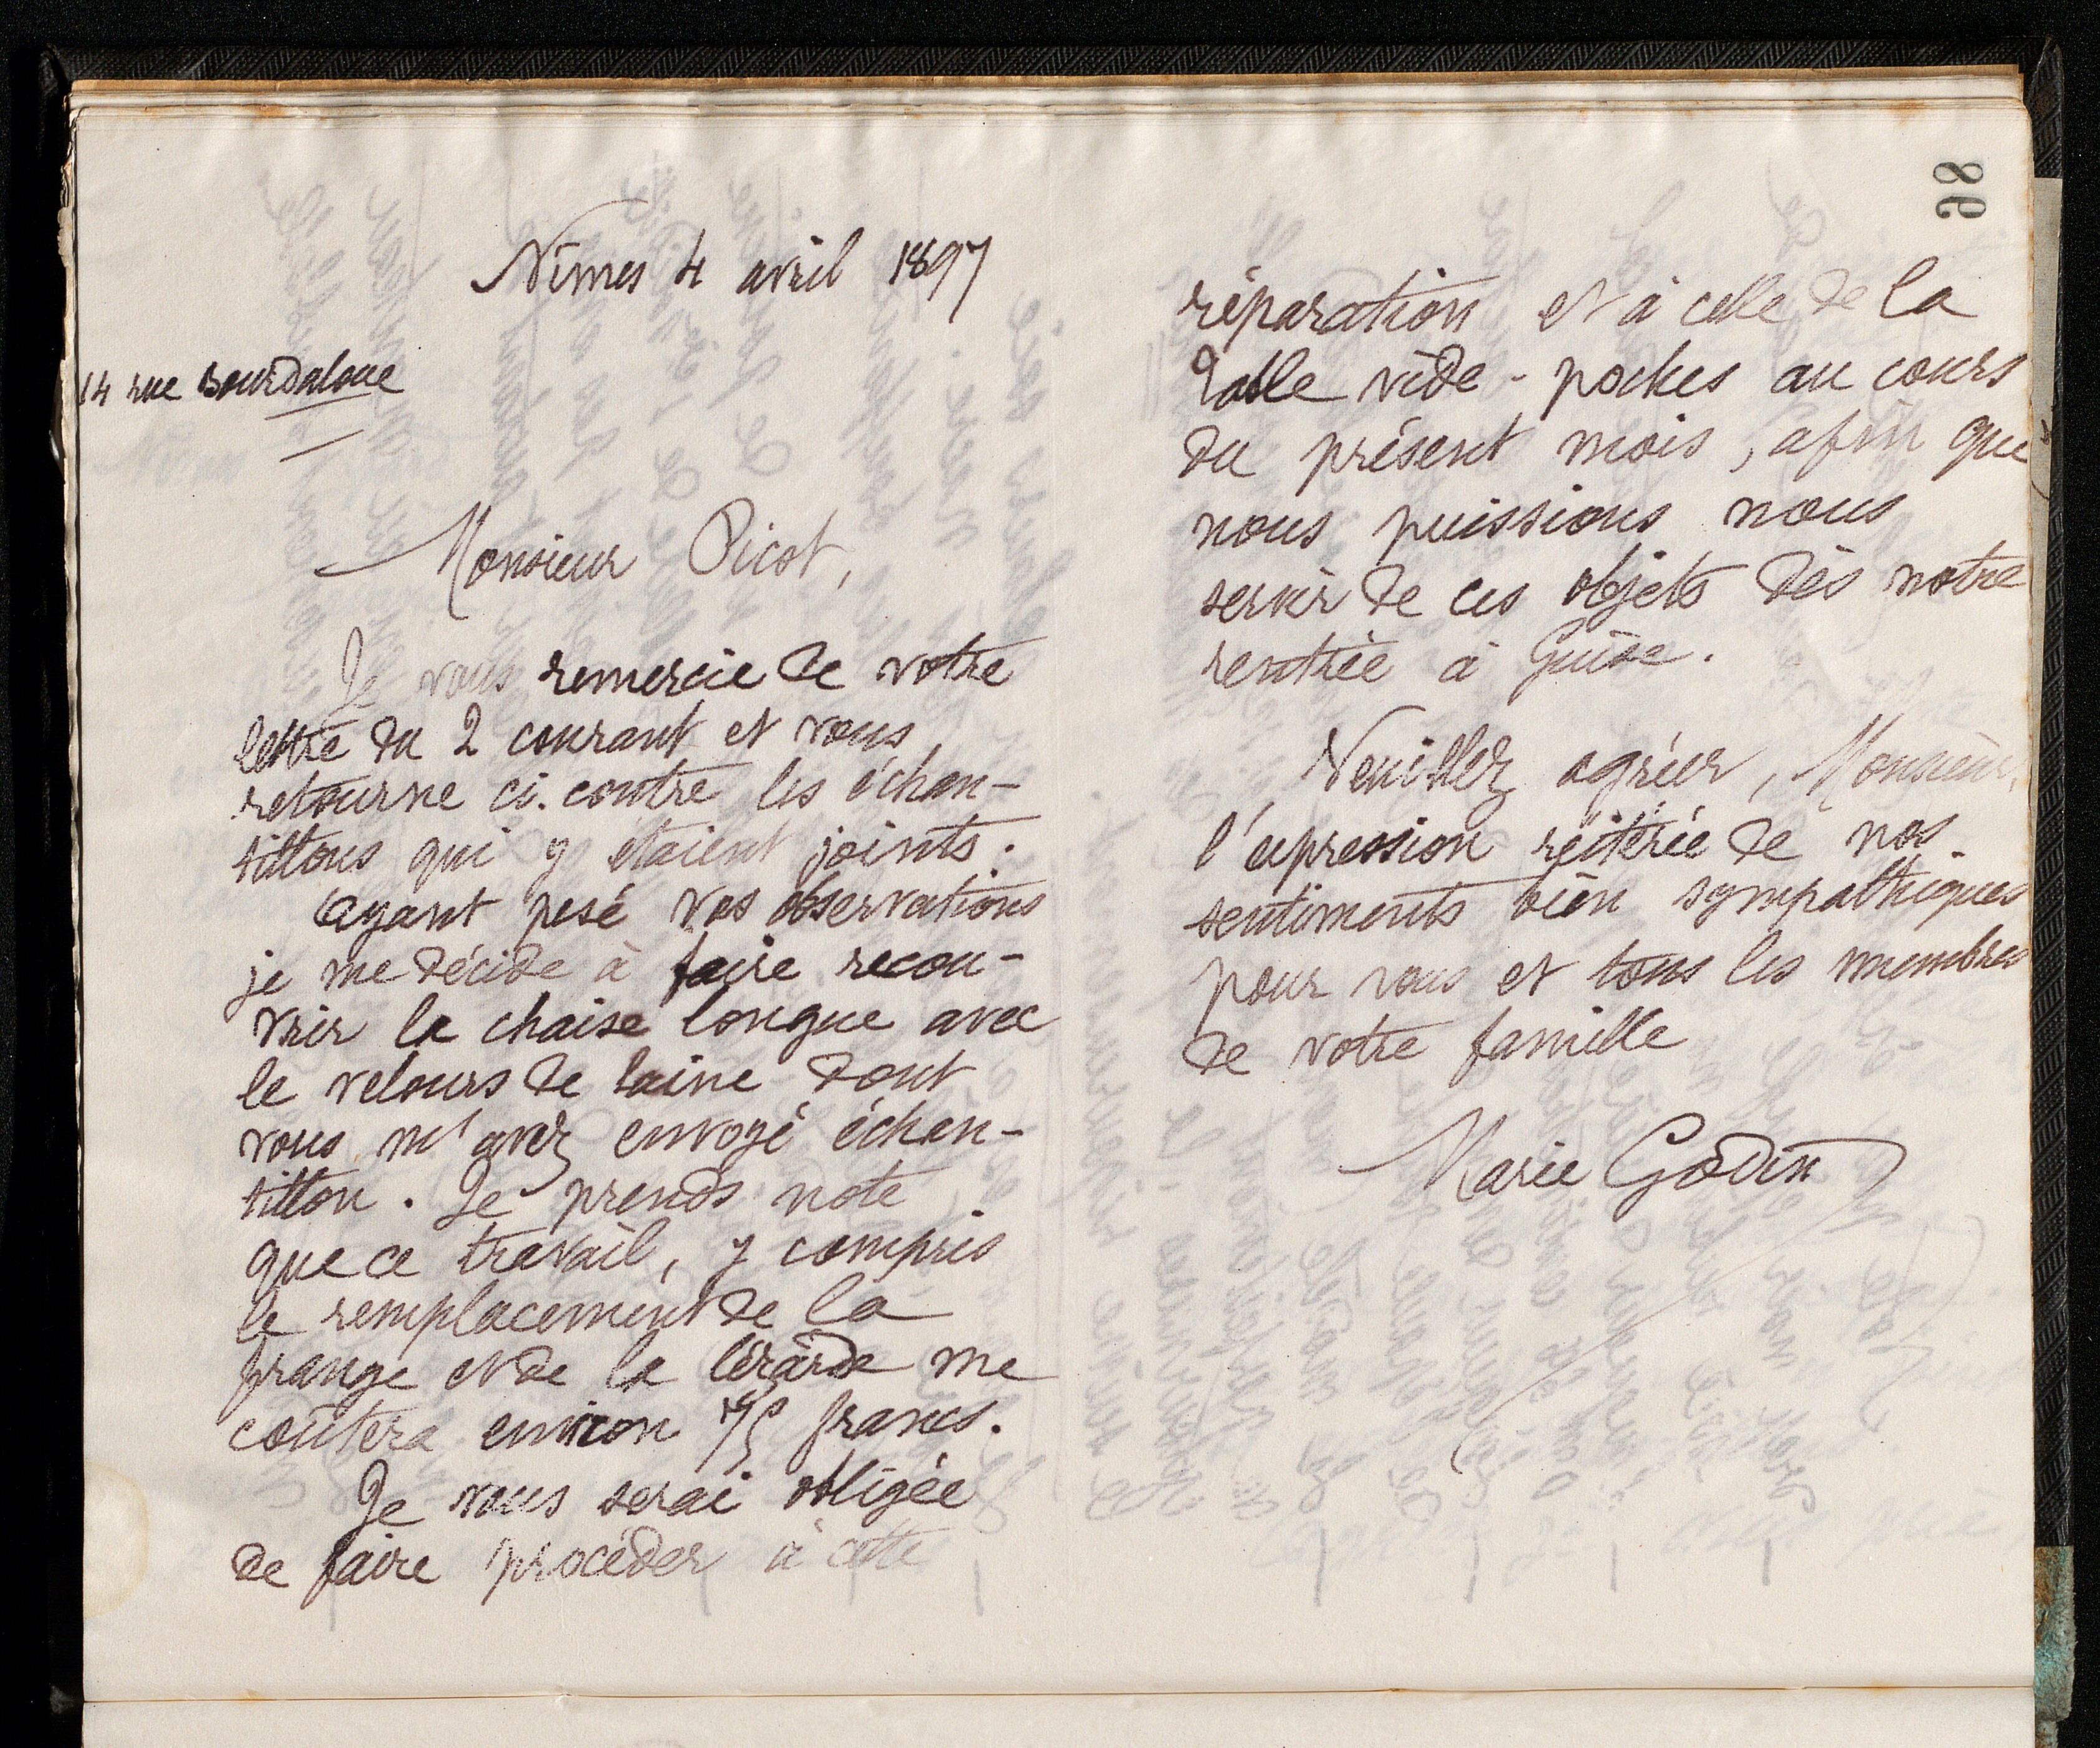 98
Nîmes 4 avril 1897
14 rue Bourdaloue
Monsieur Picot,
Je vous remercie de votre
lettre du 2 courant et vous
retourne ci-contre les échan-
tillons qui y étaient joints.
Ayant pesé vos observations
je me décide à faire recou-
vrir la chaise longue avec
le velours de laine dont
vous m'avez envoyé échan-
tillon. Je prends note
que ce travail, y compris
le remplacement de la
frange et de la me
coûtera environ francs.
Je vous serai obligée
de faire procéder à cette
réparation et à celle de la
table vide-poches au cours
du présent mois, afin que
nous puissions nous
servir de ces objets dès notre
rentrée à Guise.
Veuillez agréer, Monsieur,
l'expression réitérée de nos
sentiments bien sympathiques
pour vous et tous les membres
de votre famille
Marie Godin